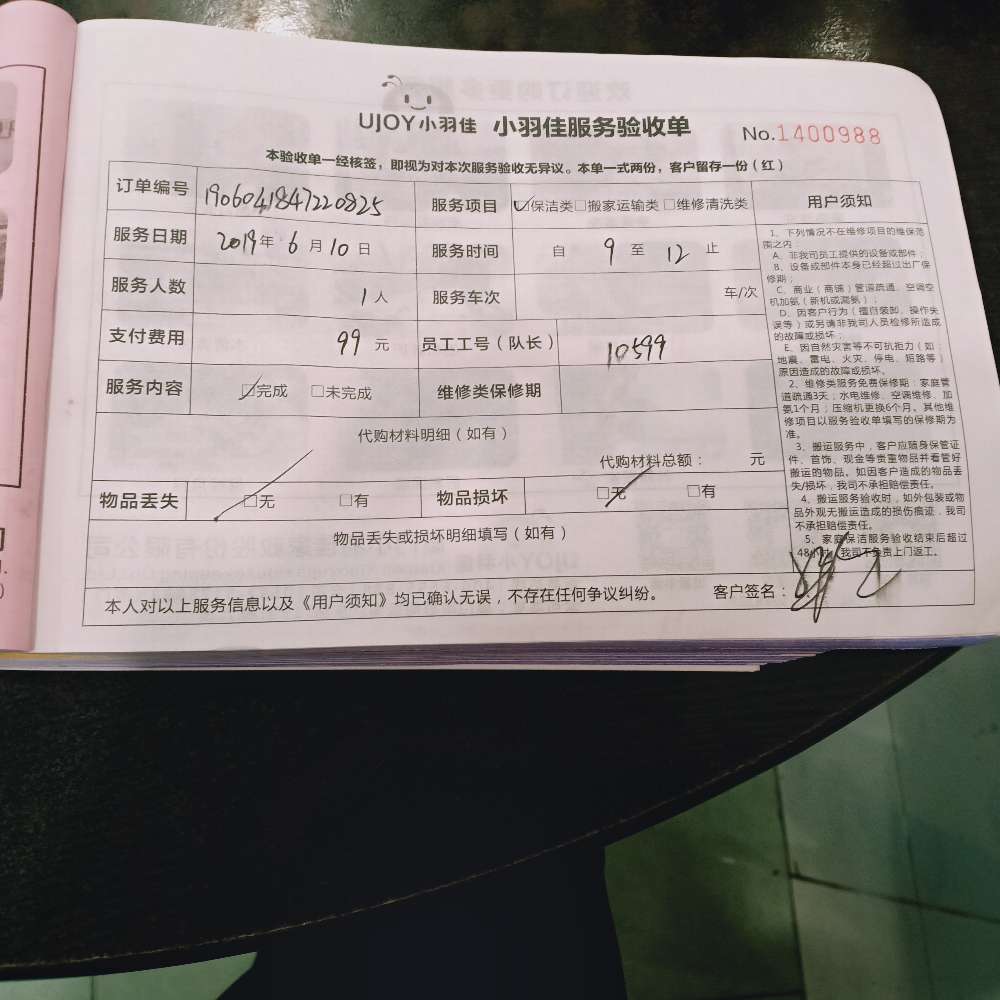 UJOY小羽佳 小羽佳服务验收单 No.1400988
本验收单一经核签，即视为对本次服务验收无异议。本单一式两份，客户留存一份（红）
订单编号 1906041847220825 服务项目 ☑保洁类□搬家运输类□维修清洗类
服务日期 2019年6月10日 服务时间 自 9 至 12 止
服务人数 1人 服务车次 车/次
支付费用 99元 员工工号（队长） 10599
服务内容 ☑完成 □未完成 维修类保修期
代购材料明细（如有）
代购材料总额： 元
物品丢失 □无 □有 物品损坏 ☑无 □有
物品丢失或损坏明细填写（如有）
本人对以上服务信息以及《用户须知》均已确认无误，不存在任何争议纠纷。 客户签名：
用户须知
1、下列情况不在维修项目的维保范
围之内：
A、非我司员工提供的设备或部件；
B、设备或部件本身已经超过出厂保
修期；
C、商业（商铺）管道疏通、空调空
机加氨（新机或漏氨）；
D、因客户行为（擅自装卸、操作失
误等）或另请非我司人员检修所造成
的故障或损坏；
E、因自然灾害等不可抗拒力（如：
地震、雷电、火灾、停电、短路等）
原因造成的故障或损坏。
2、维修类服务免费保修期：家庭管
道疏通3天；水电维修、空调维修、加
氨1个月；压缩机更换6个月。其他维
修项目以服务验收单填写的保修期为
准。
3、搬运服务中，客户应随身保管证
件、首饰、现金等贵重物品并看管好
搬运的物品。如因客户造成的物品丢
失/损坏，我司不承担赔偿责任。
4、搬运服务验收时，如外包装或物
品外观无搬运造成的损伤痕迹，我司
不承担赔偿责任。
5、家庭保洁服务验收结束后超过
48小时，我司不负责上门返工。